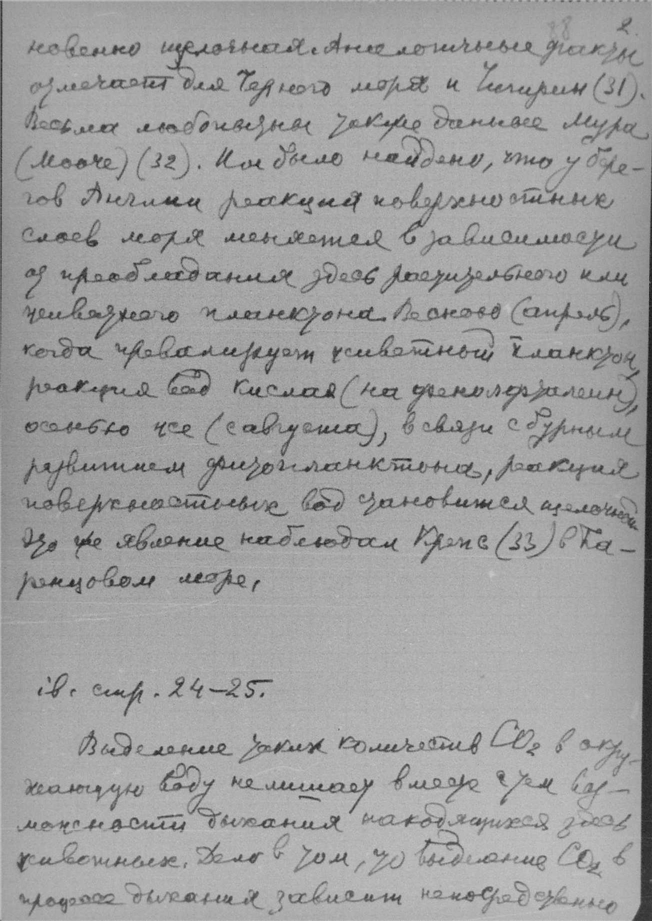 88 2.
новенно щелочная. Аналогичные факты
отмечает для Черного моря и Чигирин (31).
Весьма любопытны также данные Мура
(Мооче) (32). Им было найдено, что у бере-
гов Англии реакция поверхностных
слоев моря меняется в зависимости
от преобладания здесь растительного или
животного планктона. Весною (апрель),
когда превалирует животный планктон,
реакция вод кислая (на фенолфталеин),
осенью же (с августа), в связи с бурным
развитием фитопланктона, реакция
поверхностных вод становится щелочной
Это же явление наблюдал Крепс (33) в Ба-
ренцовом море.
ib. стр. 24-25.
Выделение таких количеств CO2 в окру-
жающую воду не лишает вместе с тем воз-
можности дыхания находящихся здесь
животных. Дело в том, что выделение CO2 в
процессе дыхания зависит непосредственно